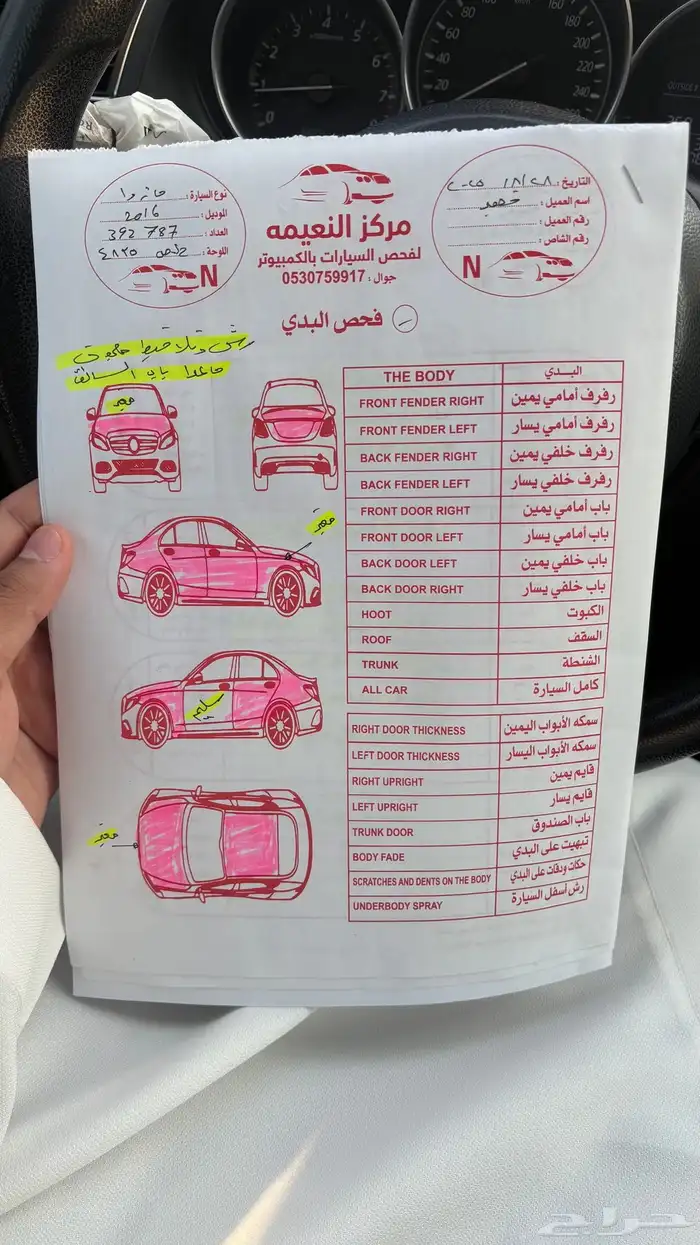 نوع السيارة : مازدا
الموديل : 2016
العداد : 392 787
اللوحة :
N
مركز النعيمه
لفحص السيارات بالكمبيوتر
جوال : 0530759917
التاريخ :
اسم العميل :
رقم العميل :
رقم الشاص :
N
فحص البدي
رش وتلاصيط
ماعدا باب السائق
THE BODY البدي
FRONT FENDER RIGHT رفرف أمامي يمين
FRONT FENDER LEFT رفرف أمامي يسار
BACK FENDER RIGHT رفرف خلفي يمين
BACK FENDER LEFT رفرف خلفي يسار
FRONT DOOR RIGHT باب أمامي يمين
FRONT DOOR LEFT باب أمامي يسار
BACK DOOR LEFT باب خلفي يمين
BACK DOOR RIGHT باب خلفي يسار
HOOT الكبوت
ROOF السقف
TRUNK الشنطة
ALL CAR كامل السيارة
RIGHT DOOR THICKNESS سمكه الأبواب اليمين
LEFT DOOR THICKNESS سمكه الأبواب اليسار
RIGHT UPRIGHT قايم يمين
LEFT UPRIGHT قايم يسار
TRUNK DOOR باب الصندوق
BODY FADE تبهيت على البدي
SCRATCHES AND DENTS ON THE BODY حكات ودقات على البدي
UNDERBODY SPRAY رش أسفل السيارة
مغير
مغير
سليم
مغير
حراج